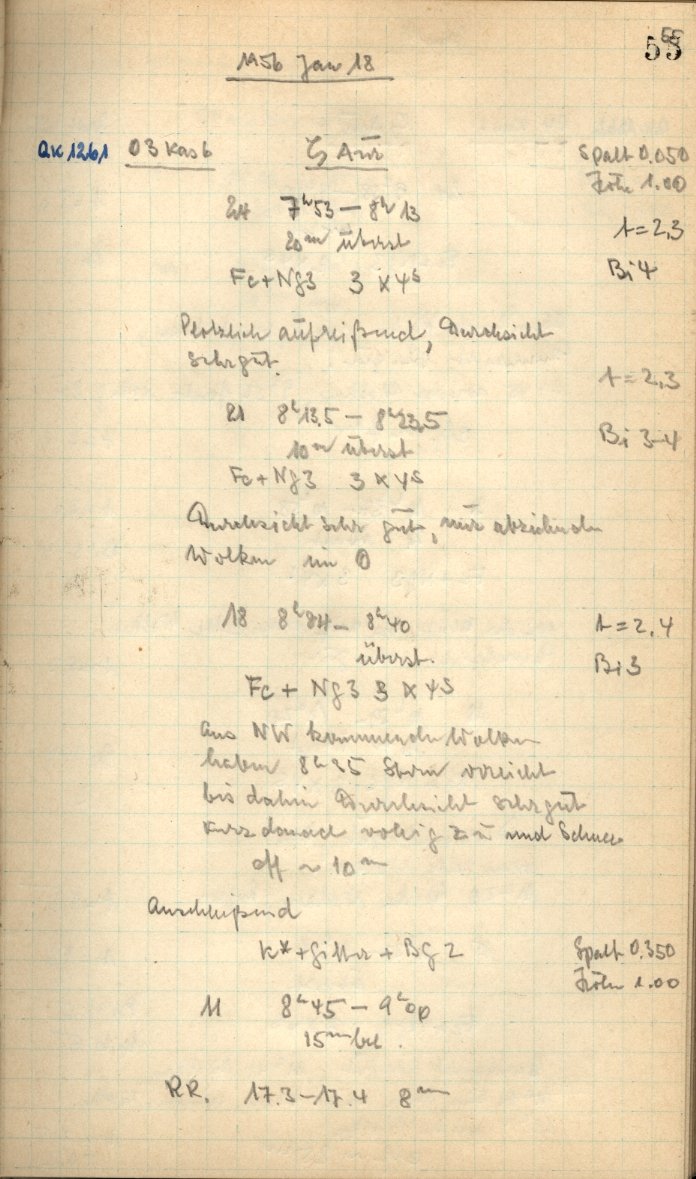 55
1956 Jan 18
QK 1261 03 Kas 6 ζ Aur Spalt 0.050
Höhe 1.00
24 7ʰ53 — 8ʰ13 t = 2,3
20ᵐ überst Bi 4
Fc + Ng3 3 x 4ˢ
Plötzlich aufreißend, Durchsicht
sehr gut.
t = 2,3
21 8ʰ13,5 — 8ʰ23,5
10ᵐ überst Bi 3-4
Fc + Ng3 3 x 4ˢ
Durchsicht sehr gut, nur abziehende
Wolken im O
18 8ʰ24 — 8ʰ40 t = 2,4
überst. Bi 3
Fc + Ng3 3 x 4ˢ
Aus NW kommende Wolken
haben 8ʰ35 Stern erreicht
bis dahin Durchsicht sehr gut
kurz danach völlig zu und Schnee
eff ~ 10ᵐ
Anschließend
K* + Gitter + BG 2 Spalt 0.350
Höhe 1.00
11 8ʰ45 — 9ʰ00
15ᵐ bel.
RR. 17.3 — 17.4 8ᵐ